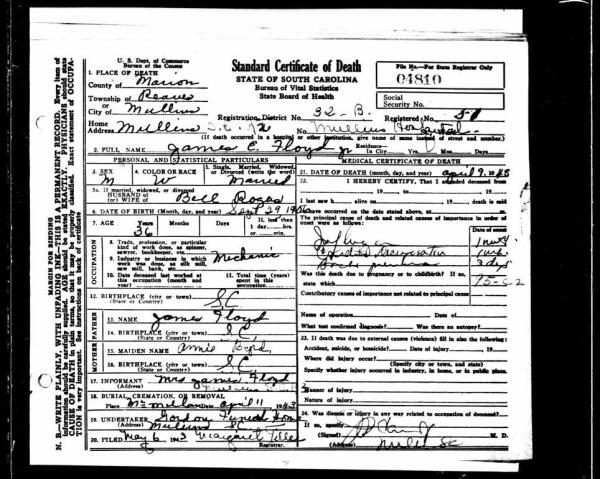 U. S. Dept. of Commerce
Bureau of the Census
Standard Certificate of Death
STATE OF SOUTH CAROLINA
Bureau of Vital Statistics
State Board of Health
File No.—For State Registrar Only
04810
Social
Security No.
1. PLACE OF DEATH
County of Marion
Township of Reaves
or
City of Mullins
Registration District No. 32-B. Registered No.
Home
Address Mullins S.C. No. Mullins Hospital
(If death occurred in a hospital or other institution, give name of same instead of street and number.)
2. FULL NAME James E. Floyd Jr Residence—
In City Yrs. Mos. Days
PERSONAL AND STATISTICAL PARTICULARS
3. SEX
M
4. COLOR OR RACE
W
5. Single, Married, Widowed, or Divorced (write the word)
Married
5a. If married, widowed, or divorced
HUSBAND of
(or) WIFE of Bell
6. DATE OF BIRTH (Month, day, and year) Sept 29 1906
7. AGE Years Months Days If less than
1 day, hrs.
or min.
36
OCCUPATION
8. Trade, profession, or particular
kind of work done, as spinner,
sawyer, bookkeeper, etc.
9. Industry or business in which
work was done, as silk mill,
saw mill, bank, etc.
Mechanic
10. Date deceased last worked at
this occupation (month and
year)
11. Total time (years)
spent in this
occupation
12. BIRTHPLACE (city or town) S.C.
(State or Country)
FATHER
13. NAME James Floyd
14. BIRTHPLACE (city or town) S.C.
(State or Country)
MOTHER
15. MAIDEN NAME Annie
16. BIRTHPLACE (city or town) S.C.
(State or Country)
17. INFORMANT Mrs James Floyd
(Address) Mullins
18. BURIAL, CREMATION, OR REMOVAL
Place McMillan Date April 11 1943
19. UNDERTAKER Funeral Home
(Address) Mullins S.C.
20. FILED May 6 1943 Margaret
Registrar.
MEDICAL CERTIFICATE OF DEATH
21. DATE OF DEATH (month, day, and year) April 9, 1943
22. I HEREBY CERTIFY, That I attended deceased from
19 to 19
I last saw h alive on 19 death is said
to have occurred on the date stated above, at m.
The principal cause of death and related causes of importance in order of
onset were as follows:
Date of onset
Was this death due to pregnancy or to childbirth? If so,
state which
Contributory causes of importance not related to principal cause
Name of operation Date of
What test confirmed diagnosis? Was there an autopsy?
23. If death was due to external causes (violence) fill in also the following:
Accident, suicide, or homicide? Date of injury 19
Where did injury occur?
(Specify city or town, and state)
Specify whether injury occurred in industry, in home, or in public place.
Manner of injury
Nature of injury
24. Was disease or injury in any way related to occupation of deceased?
If so, specify
(Signed) M. D.
(Address) Mullins SC
MARGIN FOR BINDING
N. B.—WRITE PLAINLY, WITH UNFADING INK—THIS IS A PERMANENT RECORD. Every item of
information should be carefully supplied. AGE should be stated EXACTLY. PHYSICIANS should state
CAUSE OF DEATH in plain terms, so that it may be properly classified. Exact statement of OCCUPA-
TION is very important. See instructions on back of certificate